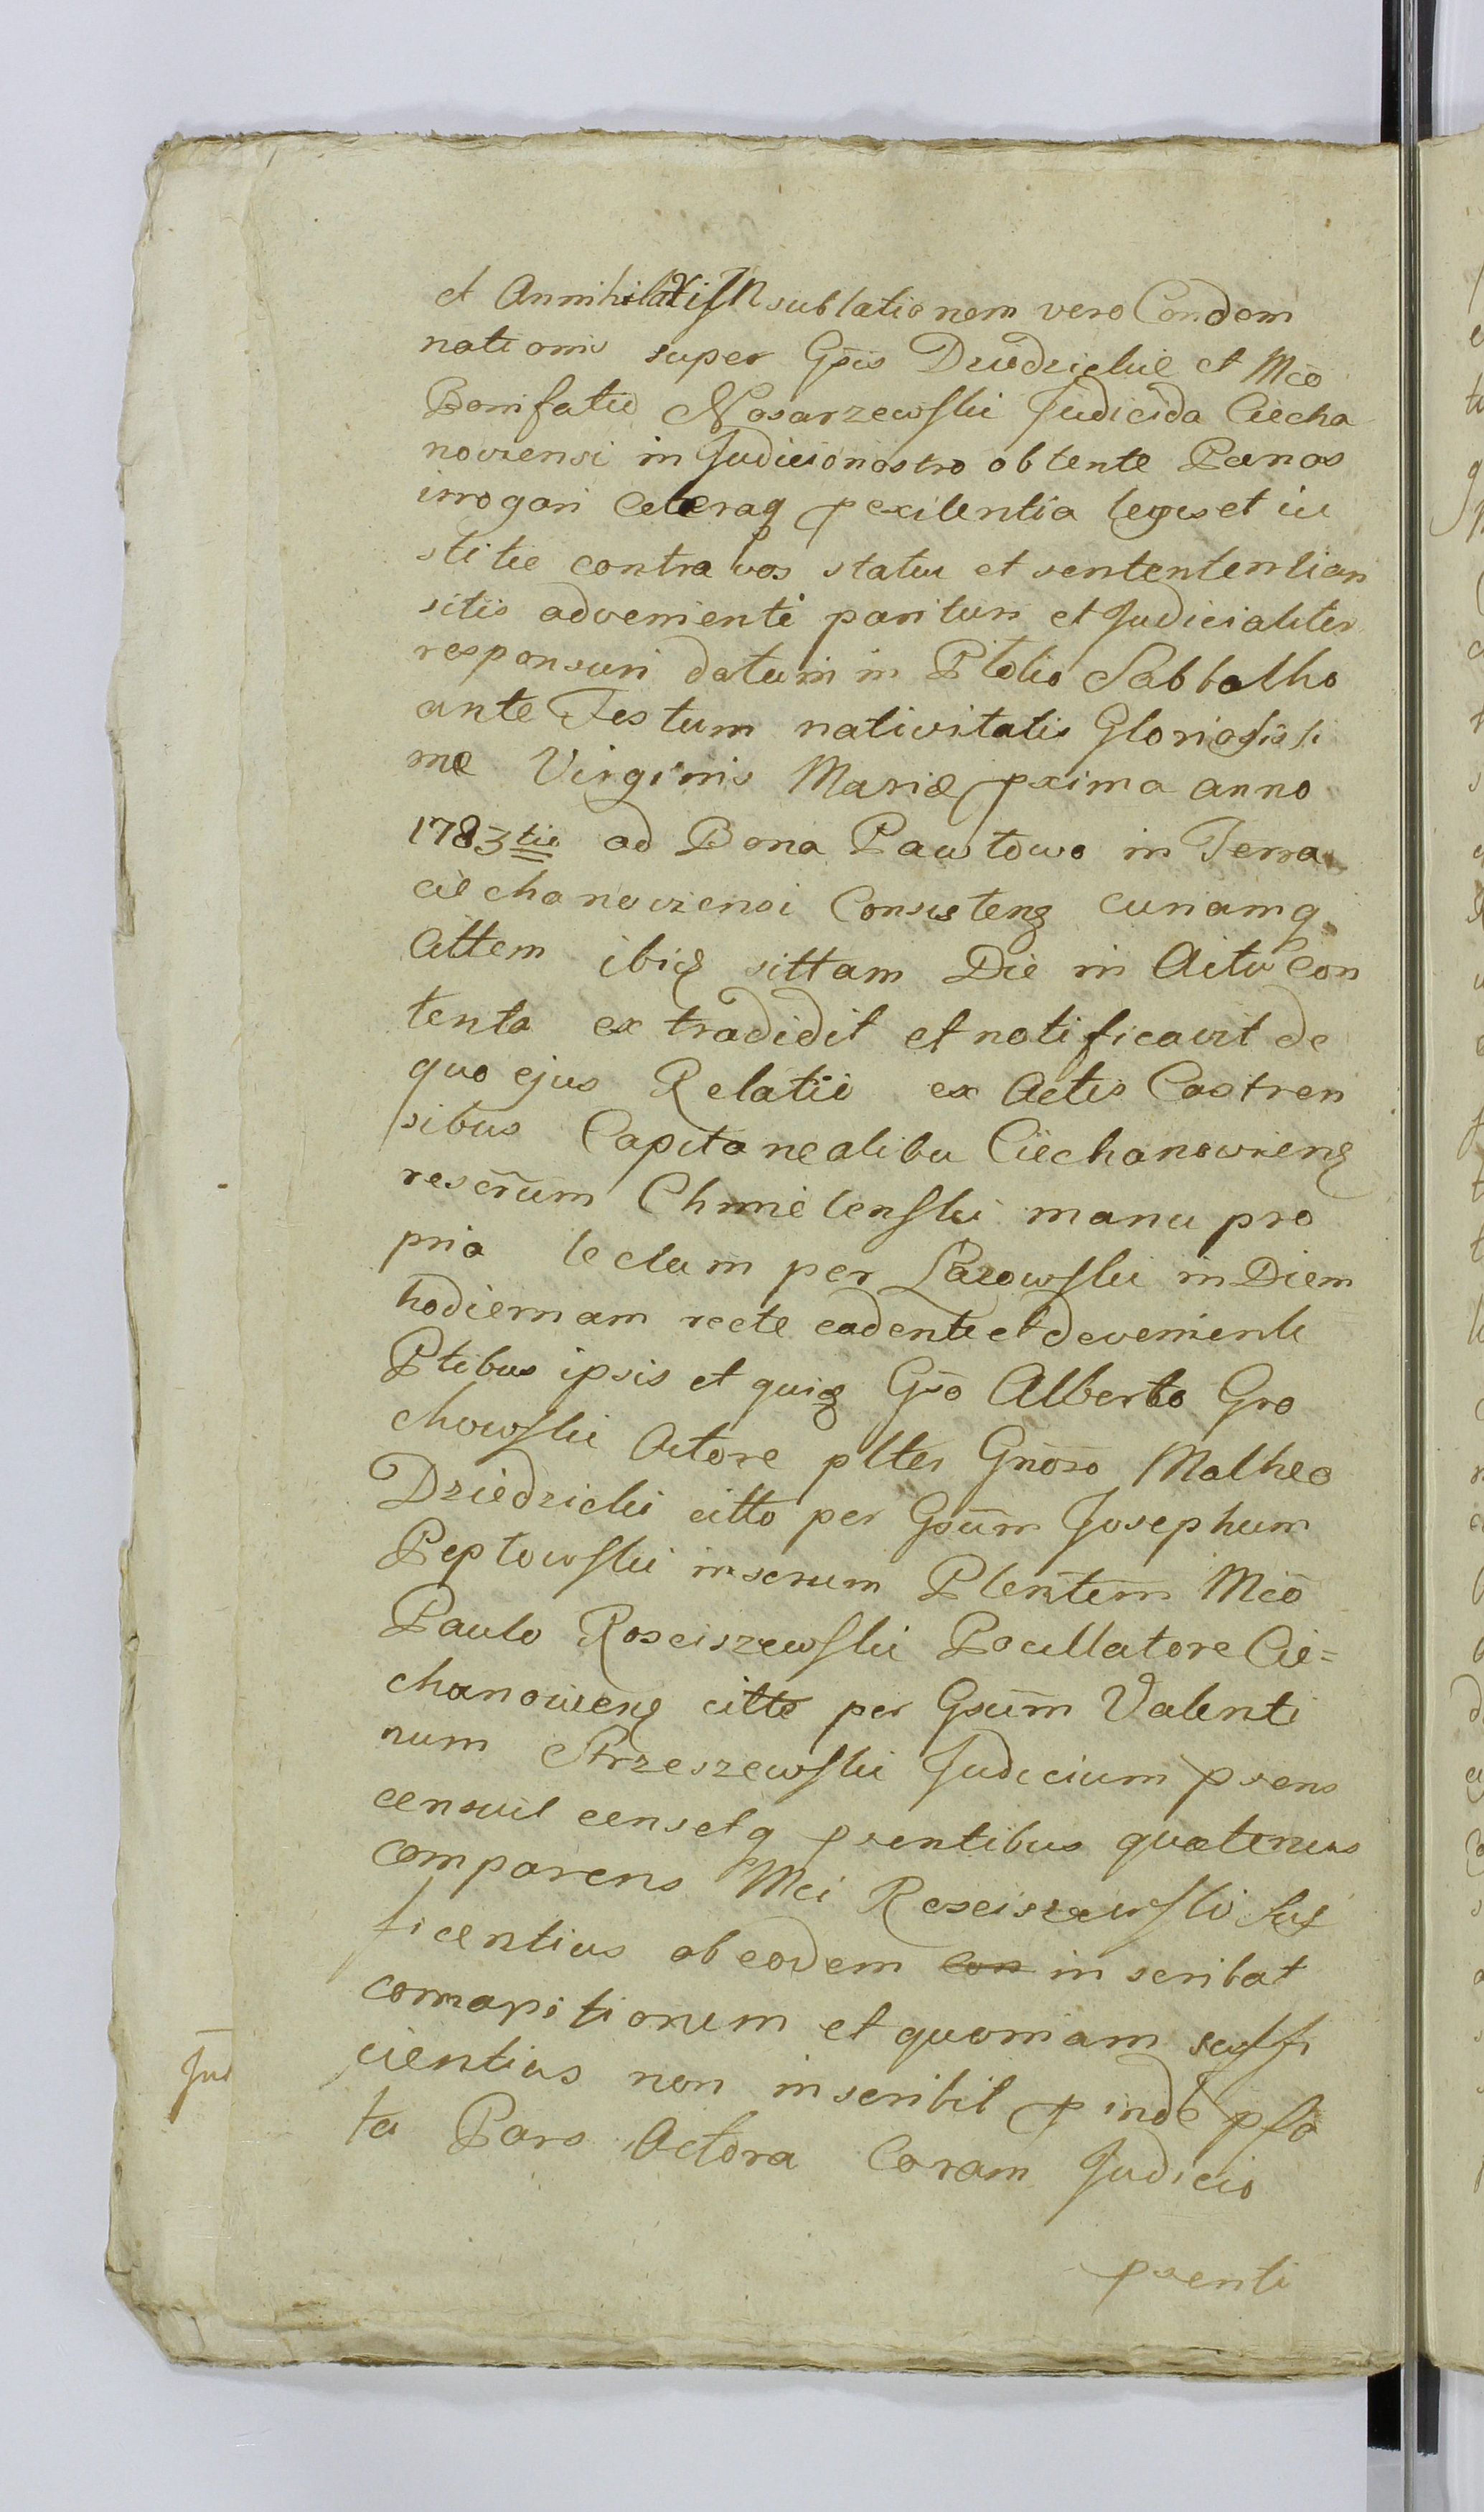 et Annihilatis In sublationem vero Condem
nationis super Gsis Dziedzickie et Mco
Bonifatio Nosarzewski Judicida Ciecha
noviensi in Judicio nostro obtente Poenas
irrogari Ceteraq pexilentia leges et iu
stitie contra vos statui et sententention
sitis advenienti parituri et Judicialiter
responsuri datum in Pltolio Sabbatho
ante Festum nativitatis Gloriosissi
mæ Virginis Mariæ pxima anno
1783tio ad Bona Pawłowo in Terra
Ciechanoviensi Consisteng curiamq
Attem ibiq sittam Die in Actu con
tenta extradidit et notificavit de
quo ejus Relatii ex Actis Castren
sibus Capitanealibu Ciechanowieng
rescrum Chmielenski manu pro
pria lectum per Łazowski in Diem
hodiernam recte cadente et devenienti
Ptibus ipsis et quiq Gso Alberto Gro
chowski Actore plter Gnoso Matheo
Dziedzicki citto per Gsum Josephum
Peptowski inserum Plentem Mco
Paulo Rosciszewski Pocillatore Cie=
chanowieng citto per Gsum Valenti
num Strzeszewski Judicium psens
censuit censetq psentibus quatenus
comparens Mci Rosciszewski suf
ficentius ab eodem con inscribat
commapitionem et quoniam suffi
cientius non inscribit pinde psa
ta Pars Actora Coram Judicio
psenti
Jud